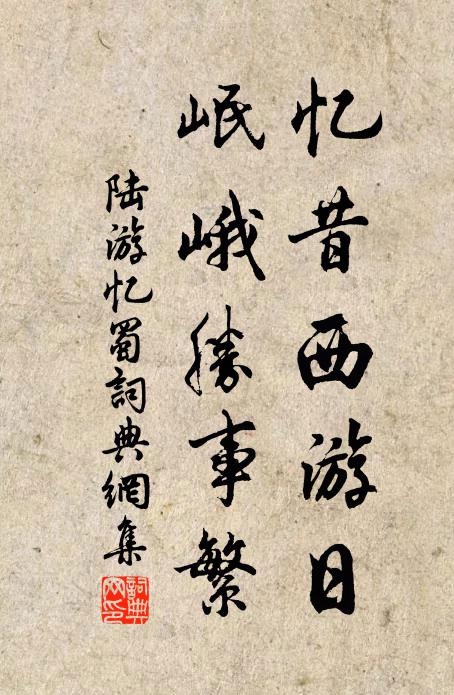 忆昔西游日
岷峨勝事繁
陆游忆蜀詞典網集
詞典
网印